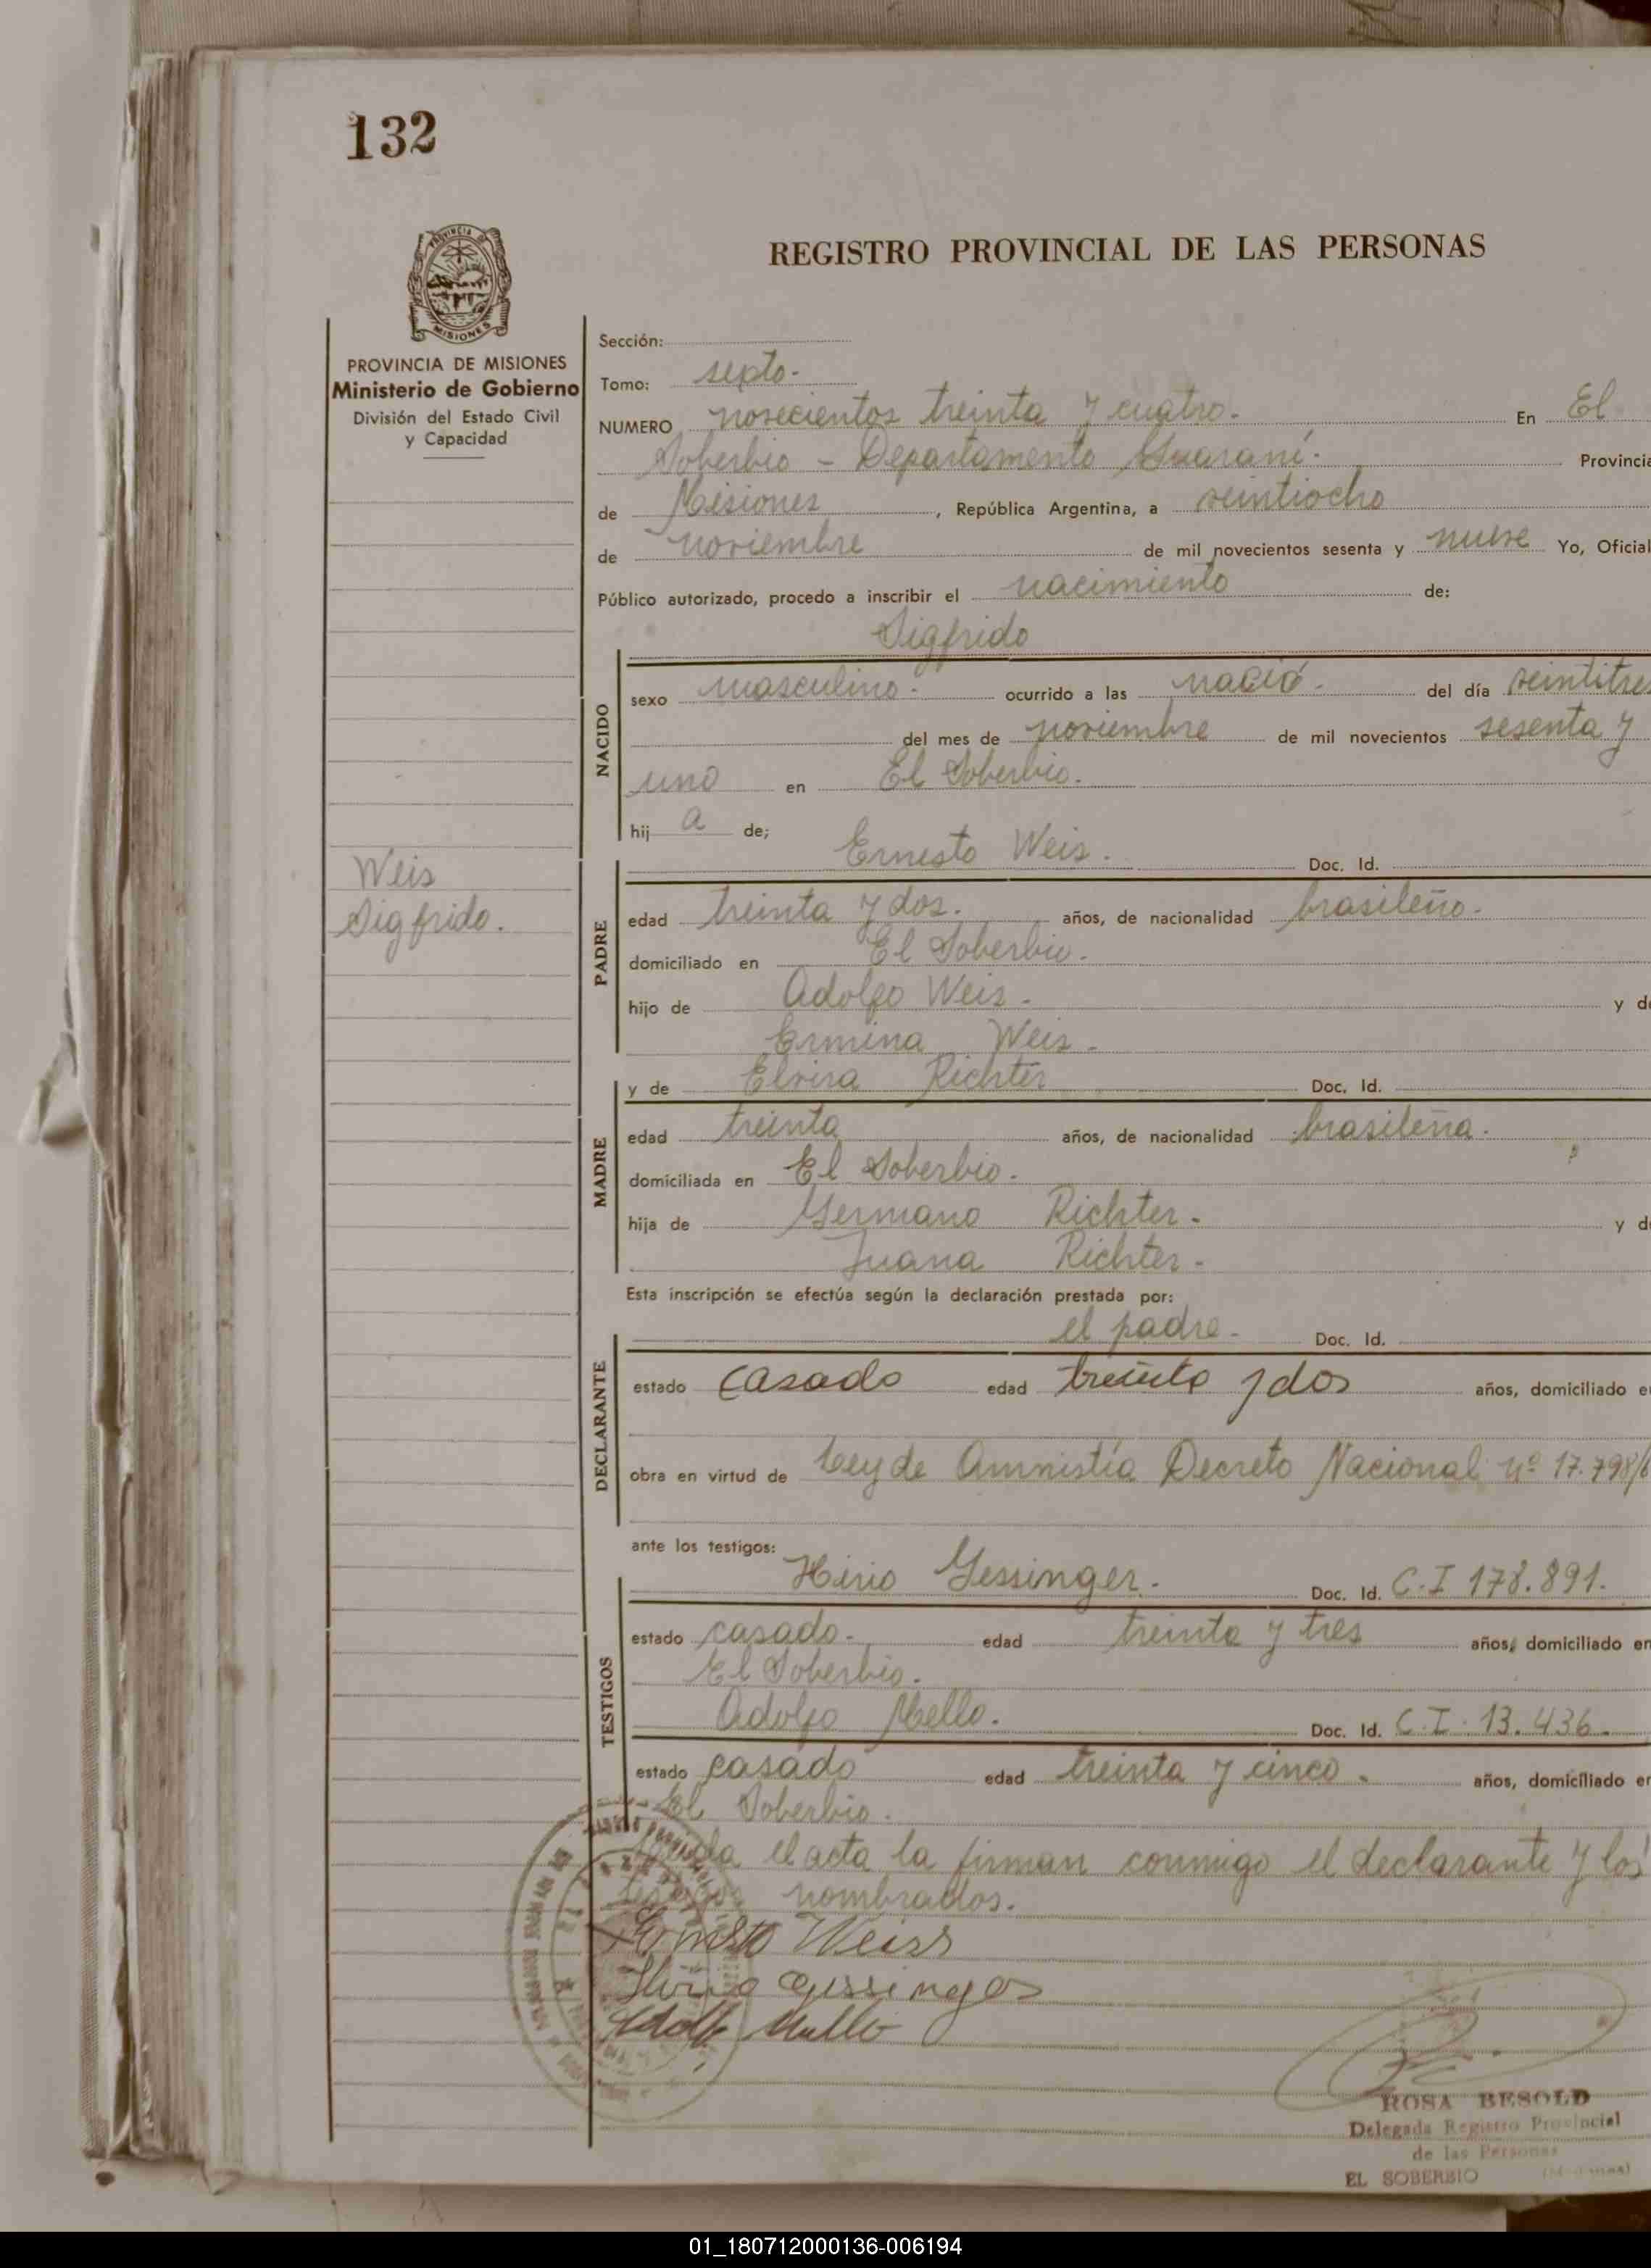 132
PROVINCIA DE MISIONES
Ministerio de Gobierno
División del Estado Civil
y Capacidad
REGISTRO PROVINCIAL DE LAS PERSONAS
Sección:
Tomo: sexto.
NUMERO novecientos treinta y cuatro. En El
Soberbio - Departamento Guaraní. Provincia
de Misiones, República Argentina, a veintiocho
de noviembre de mil novecientos sesenta y nueve Yo, Oficial
Público autorizado, procedo a inscribir el nacimiento de:
Sigfrido
NACIDO
sexo masculino. ocurrido a las nació. del día veintitres
del mes de noviembre de mil novecientos sesenta y
uno en El Soberbio.
hij a de;
Weis
Sigfrido.
Ernesto Weis. Doc. Id.
PADRE
edad treinta y dos. años, de nacionalidad brasileño.
domiciliado en El Soberbio.
hijo de Adolfo Weis. y de
Ermina Weis.
y de Elvira Richter Doc. Id.
MADRE
edad treinta años, de nacionalidad brasileña.
domiciliada en El Soberbio.
hija de Germano Richter. y de
Juana Richter.
Esta inscripción se efectúa según la declaración prestada por:
el padre. Doc. Id.
DECLARANTE
estado casado edad treinta y dos años, domiciliado en
obra en virtud de Ley de Amnistía Decreto Nacional nº 17.798/6
ante los testigos:
Hirio Gessinger. Doc. Id. C.I 178.891.
TESTIGOS
estado casado. edad treinta y tres años, domiciliado en
El Soberbio.
Adolfo Mello. Doc. Id. C.I. 13.436.
estado casado edad treinta y cinco. años, domiciliado en
El Soberbio.
el acta la firman conmigo el declarante y los
testigos nombrados.
Ernesto Weiss
Hirio Gessinger
Adolfo Mello
ROSA BESOLD
Delegada Registro Provincial
de las Personas
EL SOBERBIO (Misiones)
01_180712000136-006194